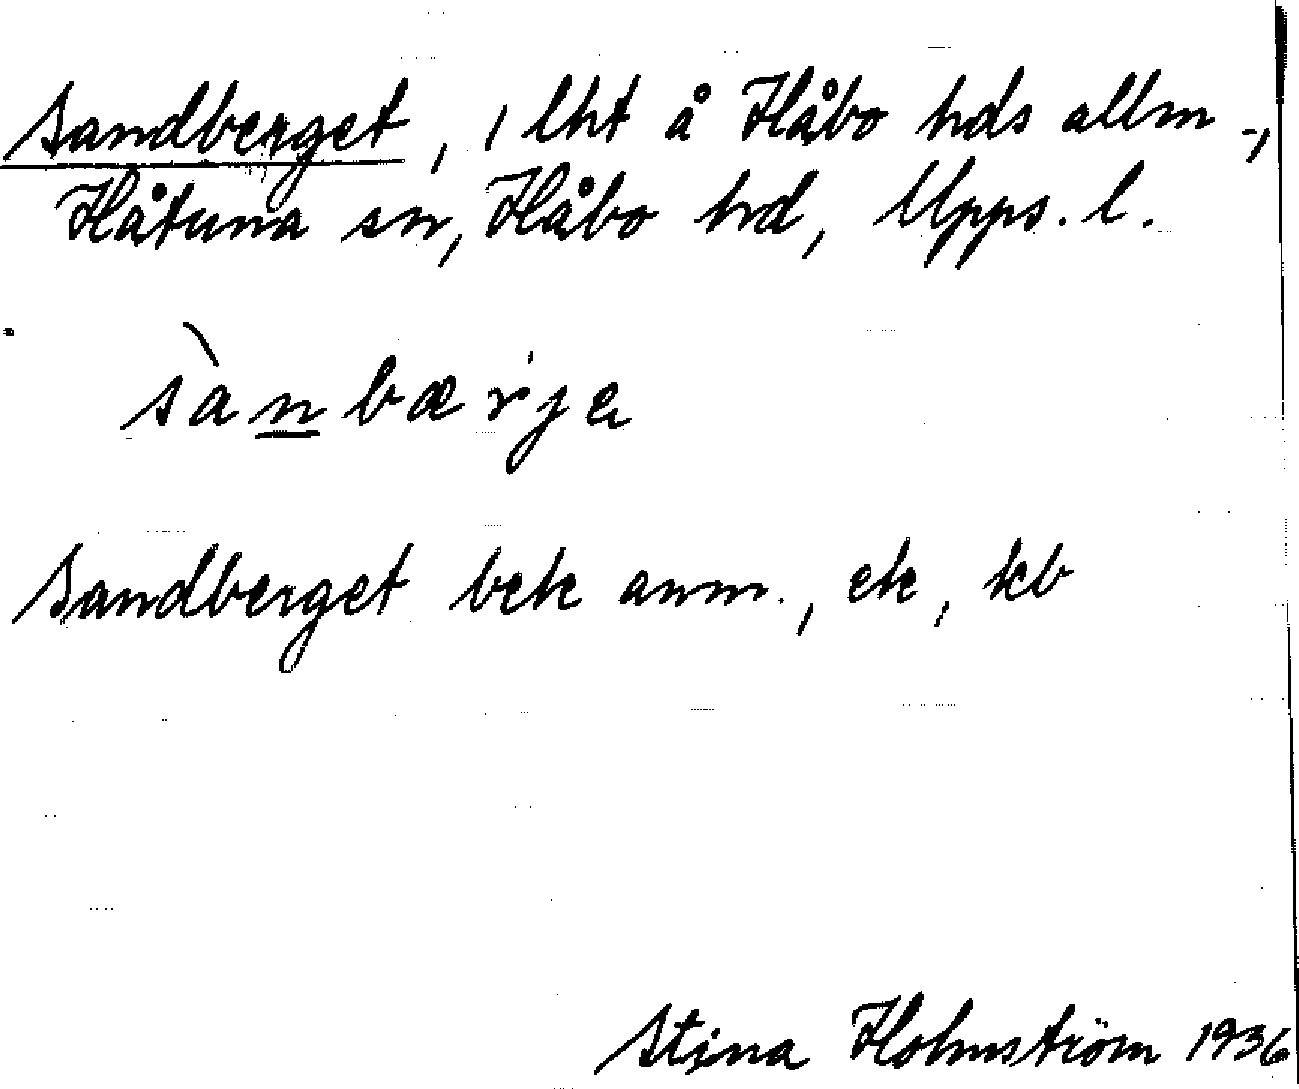 Sandberget, 1 lht å Håbo hds allm.,
Håtuna sn, Håbo hd, Upps. l.
sànbærje
Sandberget bek anm., ek, kb
Stina Holmström 1936